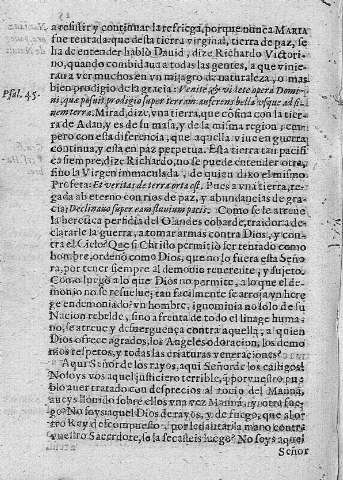 a resistir y continuar la refriega, porque nunca MARIA
fue tentada: que desta tierra virginal, tierra de paz, se
ha de entender habló Dauid, dize Richardo Victori-
no, quando combidaua a todas las gentes, a que vinie-
ran a ver muchos en vn milagro de naturaleza, o mas
bien prodigio de la gracia: Venite & videte opera Domi-
Psal. 45.
ni, quæ posuit prodigia super terram auferens bella vsque ad fi-
nem terræ. Mirad, dize, vna tierra, que confina con la tier-
ra de Adan, y es de su masa, y de la misma region; em-
pero con esta diferencia, que aquella viue en guerra
continua, y esta en paz perpetua. Esta tierra tan pacifi-
ca siempre, dize Richardo, no se puede entender otra,
sino la Virgen inmaculada, de quien dixo el mismo
Profeta: Et veritas de terra orta est. Pues a vna tierra, re-
gada ab eterno con rios de paz, y abundancias de gra-
cia: Declinauo super eam fluuium pacis: Como se le atreue
la heretica perfidia del Olandes cobarde, traidora, de-
clararle la guerra, a tomar armas contra Dios, y con-
tra el Cielo? Que si Christo permitió ser tentado como
hombre, ordenó como Dios, que no lo fuera esta Seño-
ra, por tener siempre al demonio reuerente, y sujeto.
Con o luego a lo que Dios no permite, a lo que el de-
monio no se resuelue; tan facilmente se arroja vn here
ge endemoniado? vn hombre, ignominia no solo de su
Nacion rebelde, sino afrenta de todo el linage huma-
no, se atreue y desuerguença contra aquella, a quien
Dios ofrece agrados, los Angeles adoracion, los demo
nios respetos, y todas las criaturas veneraciones?
Aqui Señor de los rayos, aqui Señor de los castigos!
No soys vos aquel justiciero terrible, q̃ por vuestro pue
blo auer tratado con desprecios al rocio del Manná,
aueys llouido sobre ellos vna vez Manná, y otra fue-
go? No soys aquel Dios de rayos, y de fuego, que a bo-
tro Rey descompuesto, por leuantar la mano contra
vuestro Sacerdote, se la secasteis luego? No soys aquel
Señor